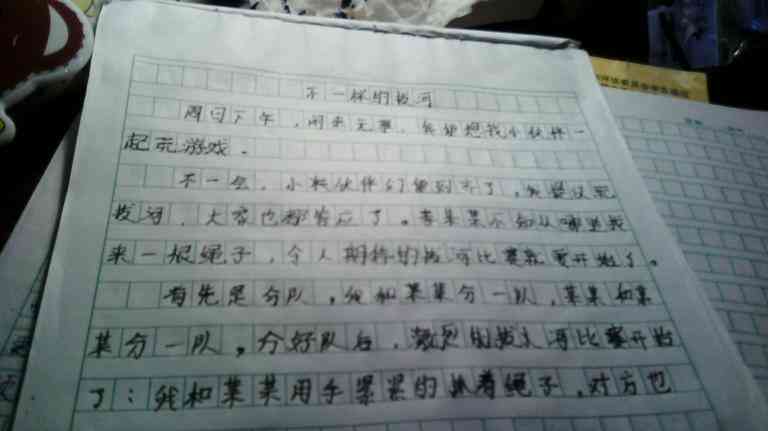 不一样的拔河
周日下午，闲来无事，我就想找小伙伴一
起玩游戏。
不一会，小伙伴们就到齐了，我提议玩
拔河，大家也都答应了。李某某不知从哪里找
来一根绳子，令人期待的拔河比赛就要开始了。
首先是分队，我和某某分一队，某某和某
某分一队。分好队后，激烈的拔河比赛开始
了：我和某某用手紧紧的抓着绳子，对方也